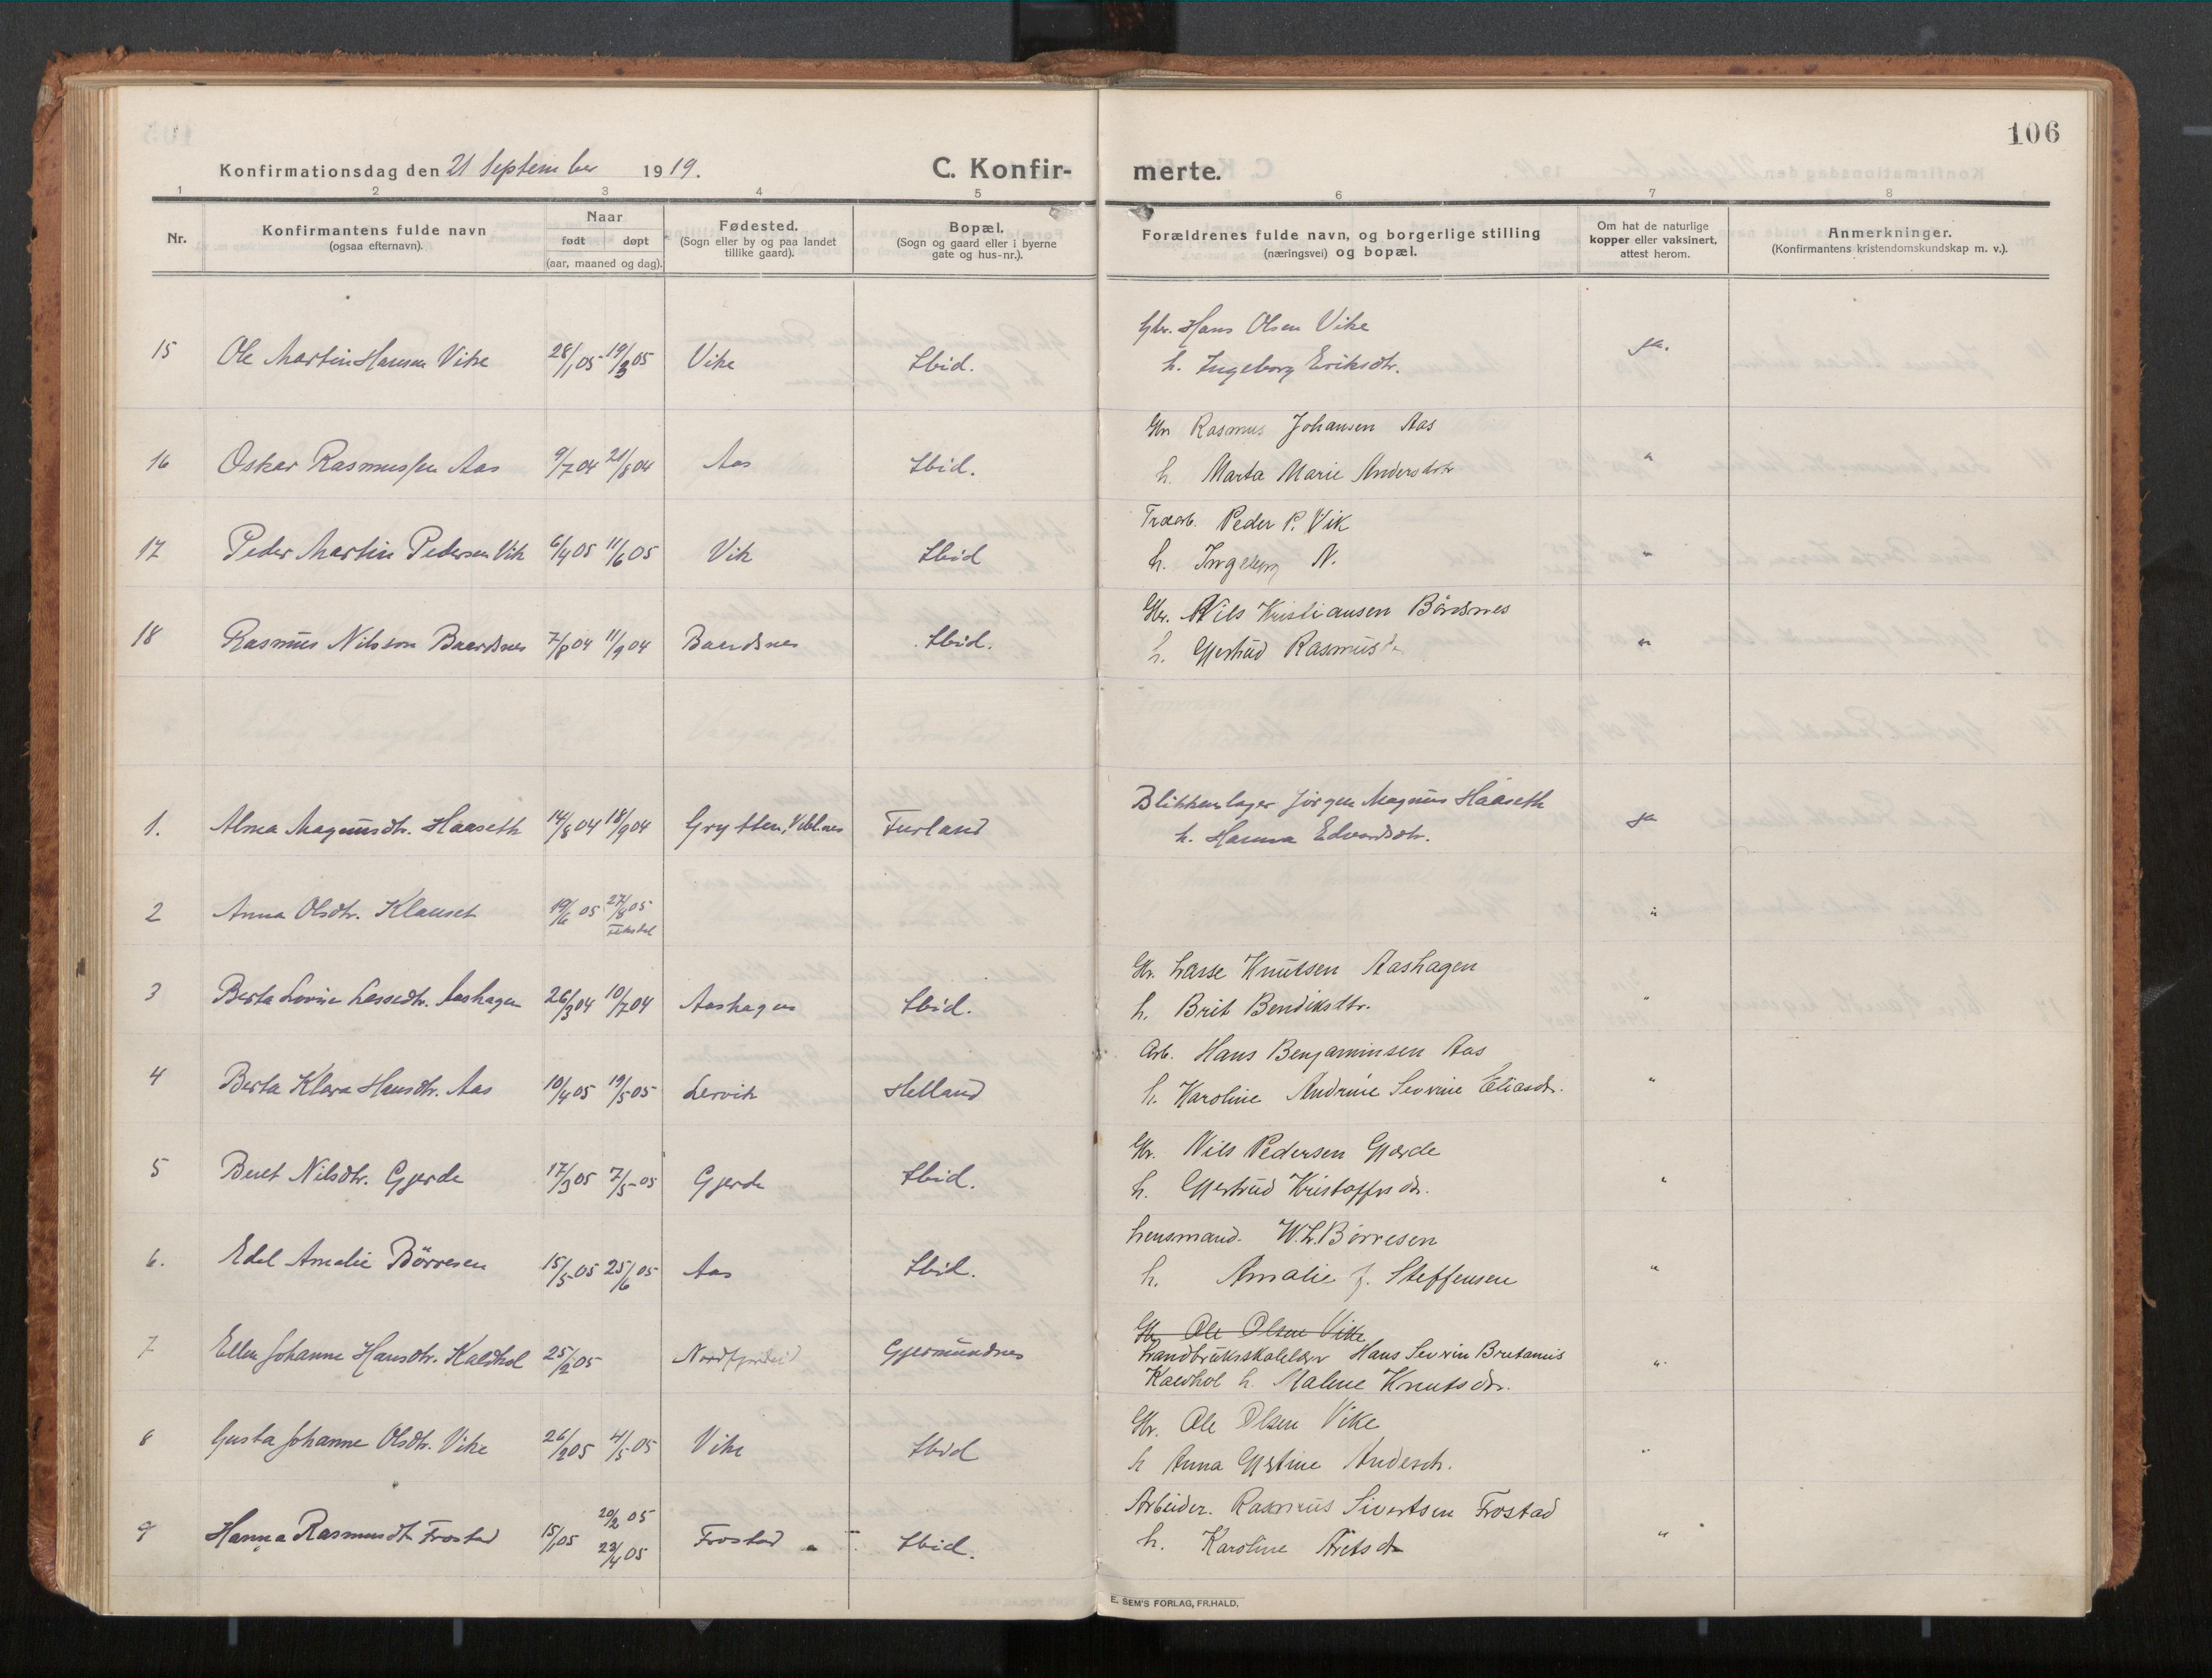 106
Konfirmationsdag den 21 September 1919.
C. Konfir-
merte.
1 2 3 4 5 6 7 8
Nr.
Konfirmantens fulde navn
(ogsaa efternavn).
Naar
født døpt
(aar, maaned og dag).
Fødested.
(Sogn eller by og paa landet
tillike gaard).
Bopæl.
(Sogn og gaard eller i byerne
gate og hus-nr.).
Forældrenes fulde navn, og borgerlige stilling
(næringsvei) og bopæl.
Om hat de naturlige
kopper eller vaksinert,
attest herom.
Anmerkninger.
(Konfirmantens kristendomskundskap m. v.).
Gbr. Hans Olsen Vike
15 Ole Martin Hansen Vike 28/1 05 19/3 05 Vike Ibid. h. Ingeborg Eriksdtr. ja.
Gbr Rasmus Johansen Aas
16 Oskar Rasmussen Aas 9/7 04 21/8 04 Aas Ibid. h. Marta Marie Andersdtr "
Træarb. Peder P. Vik
17 Peder Martin Pedersen Vik 6/4 05 11/6 05 Vik Ibid h. Ingeborg N. "
Gbr. Nils Kristiansen Bårdsnes
18 Rasmus Nilsson Baardsnes 7/8 04 11/9 04 Baardsnes Ibid. h. Gjertrud Rasmusd "
Blikkenslager Jörgen Magnus Haaseth
1. Alma Magnusdtr. Haaseth 14/8 04 18/9 04 Grytten, Veblnes Furland h. Hanna Edvardsdtr. ja
2 Anna Olsdtr. Klauset 19/6 05 27/8 05 "
Gbr. Lasse Knutsen Aashagen
3 Berta Lovise Lassedtr. Aashagen 26/3 04 10/7 04 Aashagen Ibid. h. Brit Bendiksdtr. "
Arb. Hans Benjaminsen Aas
4 Berta Klara Hansdtr. Aas 10/4 05 19/5 05 Lervik Helland h. Karoline Andrine Sevrine Eliasdr. "
Gbr. Nils Pedersen Gjærde
5 Beret Nilsdtr. Gjerde 17/3 05 7/5 05 Gjerde Ibid. h. Gjertrud Kristoffersdr. "
Lensmand. W.L. Börresen
6. Edel Amalie Börresen 15/5 05 25/6 05 Aas Ibid. h. Amalie f. Steffensen "
Gbr Ole Olsen Vike
Landbruksskolelærer Hans Sevrin Bretanus
7 Ellen Johanne Hansdtr. Kaldhol 25/2 05 Nordfjordeid Gjermundnes Kaldhol h. Malene Knutsdr. "
Gbr. Ole Olsen Vike
8 Gusta Johanne Olsdtr. Vike 26/2 05 4/5 05 Vike Ibid h Anna Gjertine Andersdr. "
Arbeider. Rasmus Sivertsen Frostad
9 Hanna Rasmusdtr Frostad 15/1 05 20/2 05 23/4 05 Frostad Ibid. h. Karoline "
E. SEM'S FORLAG, FR.HALD.